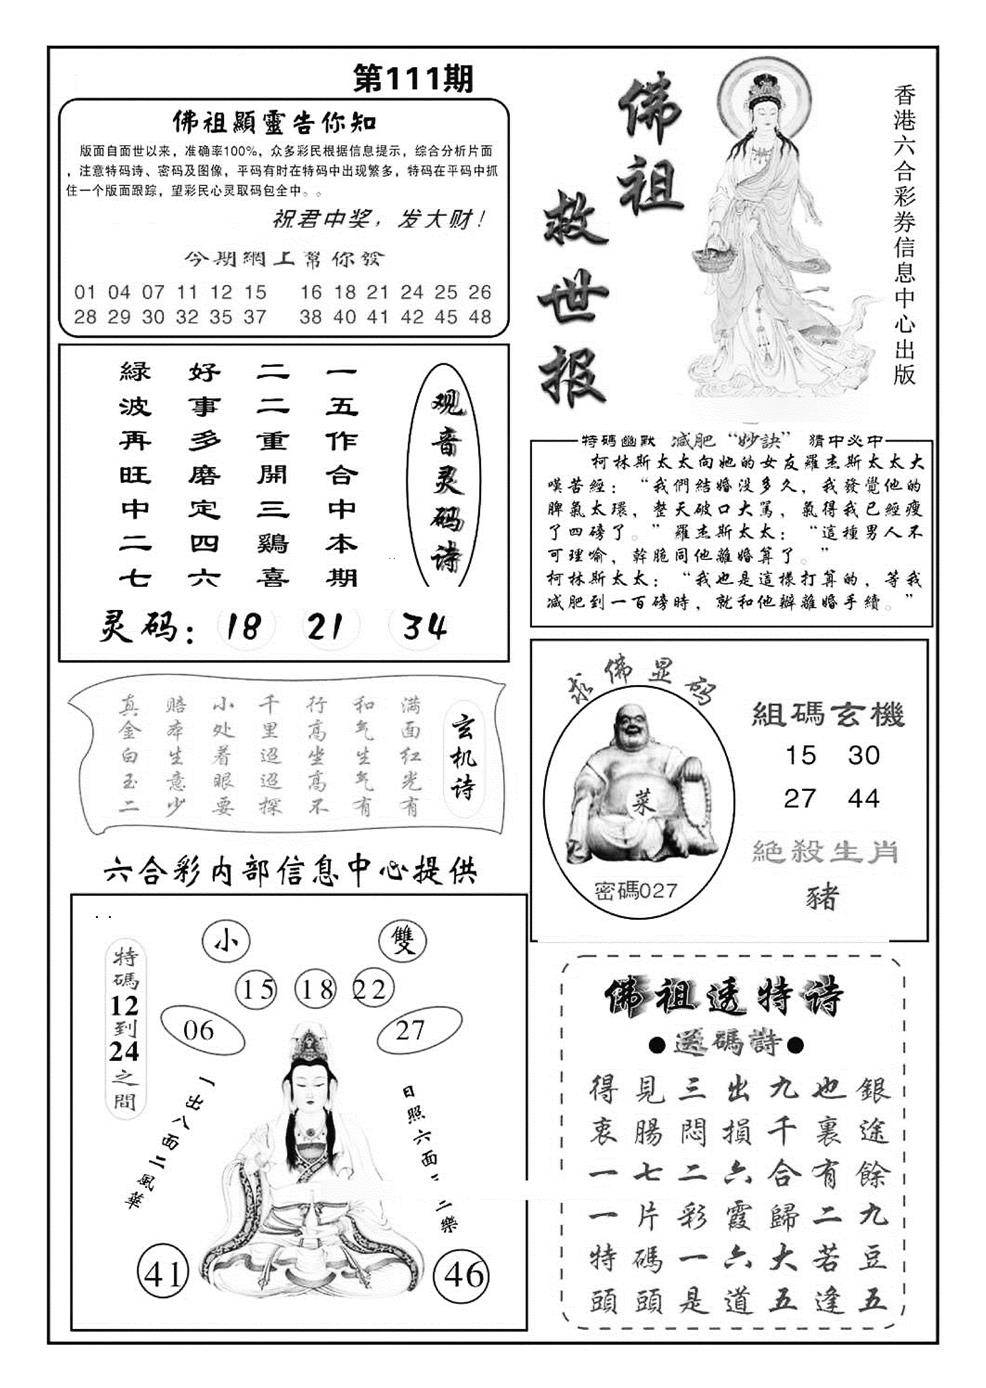 第111期
佛祖顯靈告你知
版面自面世以来，准确率100%，众多彩民根据信息提示，综合分析片面
，注意特码诗、密码及图像，平码有时在特码中出现繁多，特码在平码中抓
住一个版面跟踪，望彩民心灵取码包全中。。
祝君中奖，发大财！
今期網上幫你發
01 04 07 11 12 15 16 18 21 24 25 26
28 29 30 32 35 37 38 40 41 42 45 48
佛祖
救世报
香港六合彩券信息中心出版
观音灵码诗
一五作合中本期
二二重開三鷄喜
好事多磨定四六
緑波再旺中二七
灵码：18 21 34
特碼幽默 减肥“妙訣” 猜中必中
柯林斯太太向她的女友羅杰斯太太大
嘆苦經：“我們結婚没多久，我發覺他的
脾氣太環，整天破口大罵，氣得我已經瘦
了四磅了。”羅杰斯太太：“這種男人不
可理喻，幹脆同他離婚算了。”
柯林斯太太：“我也是這樣打算的，等我
减肥到一百磅時，就和他辦離婚手續。”
玄机诗
满面红光有
和气生气有
行高坐高不
千里迢迢探
小处着眼要
赔本生意少
真金白玉二
求佛显码
菜
密碼027
組碼玄機
15 30
27 44
絶殺生肖
豬
六合彩内部信息中心提供
小
雙
15 18 22
06
27
特碼12到24之間
一出八面二風華
日照六面二三樂
41
46
佛祖透特诗
●送碼詩●
銀途餘九豆五
也裏有二若逢
九千合歸大五
出損六霞六道
三悶二彩一是
見腸七片碼頭
得衷一一特頭